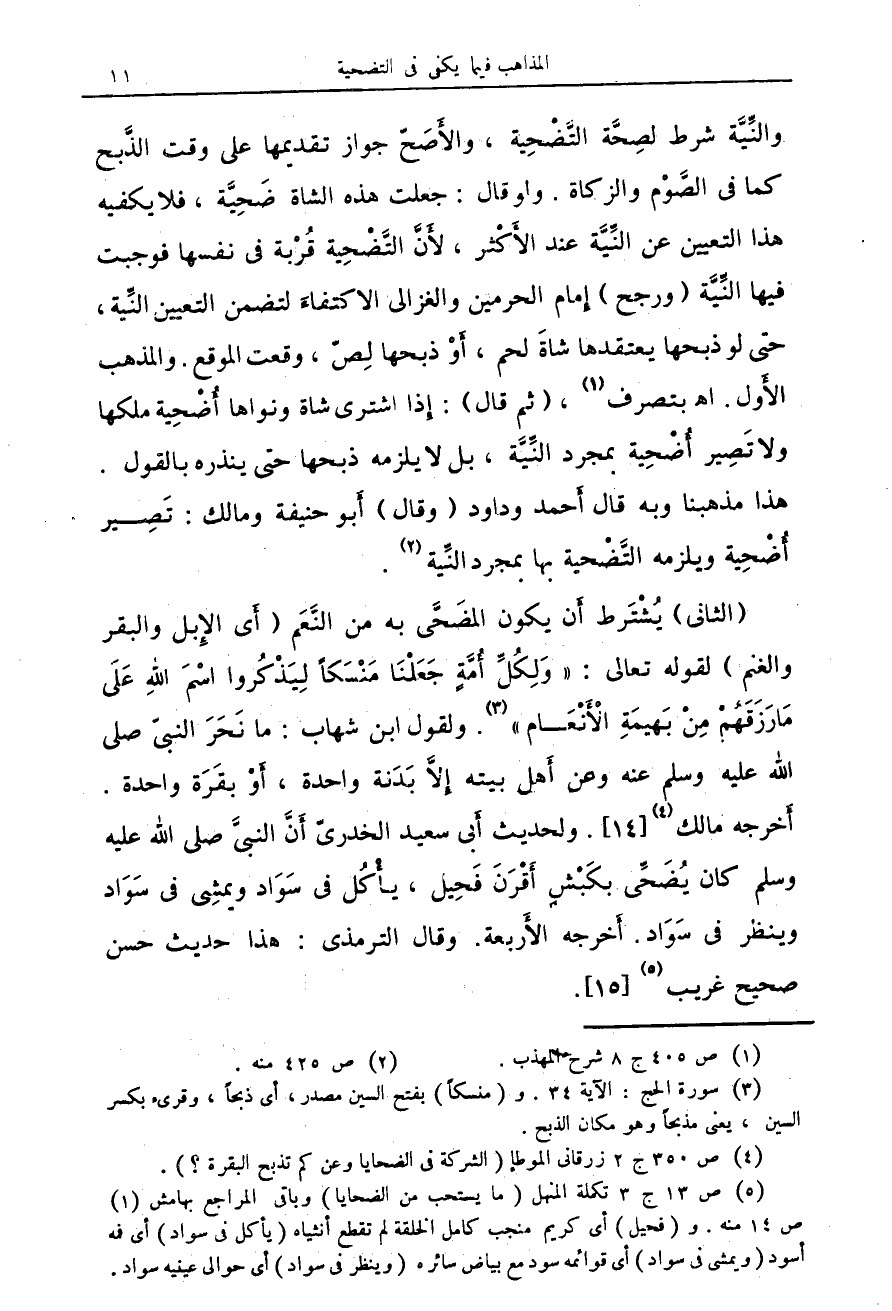 المذاهب فيما يكفى فى التضحية
١١
والنِّيَّة شرط لصِحَّة التَّضْحِية ، والأَصَحّ جواز تقديمها على وقت الذَّبح
كما فى الصَّوْم والزكاة . ولو قال : جعلت هذه الشاة ضَحِيَّة ، فلا يكفيه
هذا التعيين عن النِّيَّة عند الأَكْثر ، لأَنَّ التَّضْحية قُرْبة فى نفسها فوجبت
فيها النِّيَّة ( ورجح ) إمام الحرمين والغزالى الاكتفاءَ لتضمن التعيين النِّية ،
حتى لو ذبحها يعتقدها شاةَ لحم ، أَوْ ذبحها لِصّ ، وقعت الموقع . والمذهب
الأَول . اه بتصرف (١) ، ( ثم قال ) : إذا اشترى شاة ونواها أُضْحِية ملكها
ولا تَصِير أُضْحِية بمجرد النِّيَّة ، بل لا يلزمه ذبحها حتى ينذره بالقول .
هذا مذهبنا وبه قال أَحمد وداود ( وقال ) أَبو حنيفة ومالك : تَصِـــير
أُضْحِية ويلزمه التَّضْحية بها بمجرد النِّية (٢) .
( الثانى ) يُشْتَرط أَن يكون المضَحَّى به من النَّعَم ( أَى الإِبل والبقر
والغنم ) لقوله تعالى : « وَلِكُلِّ أُمَّةٍ جَعَلْنَا مَنْسَكاً لِيَذْكُروا اسْمَ اللهِ عَلَى
مَارَزَقَهُمْ مِنْ بَهِيمَةِ الْأَنْعَـــام » (٣) . ولقول ابن شهاب : ما نَحَرَ النبىّ صلى
الله عليه وسلم عنه وعن أهل بيته إلاَّ بَدَنة واحدة ، أَوْ بقَرَة واحدة .
أَخرجه مالك (٤) [١٤] . ولحديث أَبى سعيد الخدرىّ أَنَّ النبىَّ صلى الله عليه
وسلم كان يُضَحِّى بكَبْشٍ أَقْرَنَ فَحِيل ، يأْكُل فى سَوَاد ويمشِى فى سَوَاد
وينظر فى سَوَاد . أَخرجه الأَربعة. وقال الترمذى : هذا حديث حسن
صحيح غريب (٥) [١٥].
(١) ص ٤٠٥ ج ٨ شرح المهذب . (٢) ص ٤٢٥ منه .
(٣) سورة الحج : الآية ٣٤ . و ( منسكاً ) بفتح السين مصدر ، أى ذبحاً ، وقرىء بكسر
السين ، يعنى مذبحاً وهو مكان الذبح .
(٤) ص ٣٥٠ ج ٢ زرقانى الموطإ ( الشركة فى الضحايا وعن كم تذبح البقرة ؟ ) .
(٥) ص ١٣ ج ٣ تكلة المنهل ( ما يستحب من الضحايا ) وباقى المراجع بهامش (١)
ص ١٤ منه . و ( فحيل ) أى كريم منجب كامل الخلقة لم تقطع أنثياه ( يأكل فى سواد ) أى فه
أسود ( ويمشى فى سواد ) أى قوائمه سود مع بياض سائره ( وينظر فى سواد ) أى حوالى عينيه سواد .